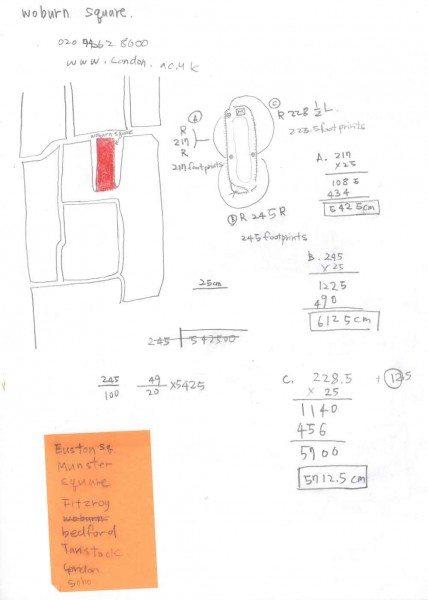 woburn square.
020 7862 8000
www.london.ac.uk
woburn square
A
R
217
R
217 footprints
C
R 228 1/2 L
228.5 footprints
B R 245 R
245 footprints
A. 217
x25
1085
434
5425cm
B. 245
x 25
1225
490
6125cm
25cm
245 542500
245/100 49/20 x5425
C. 228.5 + 12.5
x 25
1140
456
5700
5712.5cm
Euston sq.
Munster
square
Fitzroy
woburn
bedford
Tavistock
London
Soho